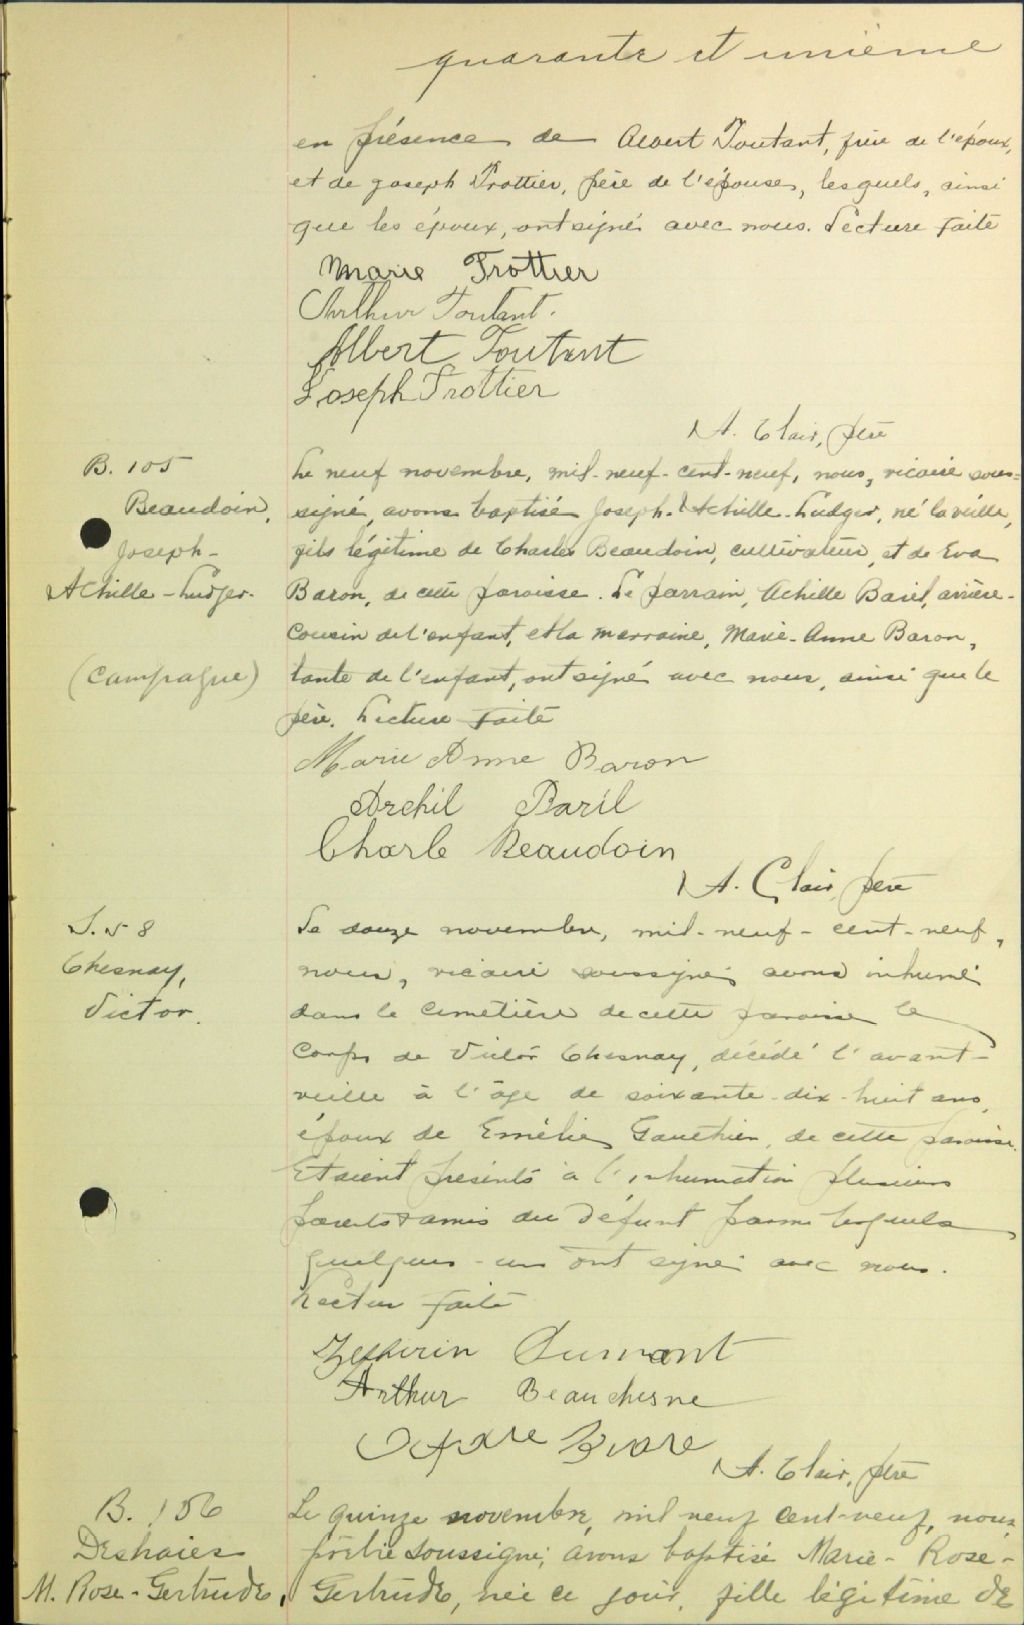 quarante et unième
en présence de Albert Toutant, frère de l'époux,
et de Joseph Trottier, père de l'épouse, lesquels, ainsi
que les époux, ont signé avec nous. Lecture faite
Marie Trottier
Arthur Toutant.
Albert Toutant
Joseph Trottier
A. Clair, ptre
B. 105
Beaudoin,
Joseph-
Achille-Ludger.
(Campagne)
Le neuf novembre, mil-neuf-cent-neuf, nous, vicaire sous-
signé, avons baptisé Joseph-Achille-Ludger, né la veille,
fils légitime de Charles Beaudoin, cultivateur, et de Eva
Baron, de cette paroisse. Le parrain, Achille Baril, arrière-
cousin de l'enfant, et la marraine, Marie-Anne Baron,
tante de l'enfant, ont signé avec nous, ainsi que le
père. Lecture faite
Marie Anne Baron
Archil Baril
Charle Beaudoin
A. Clair, ptre
S. 58
Chesnay,
Victor.
Le douze novembre, mil-neuf-cent-neuf,
nous, vicaire soussigné avons inhumé
dans le cimetière de cette paroisse le
corps de Victor Chesnay, décédé l'avant-
veille à l'âge de soixante-dix-huit ans,
époux de Emélie Gauthier, de cette paroisse.
Etaient présents à l'inhumation plusieurs
parents & amis du défunt parmi lesquels
quelques-uns ont signé avec nous.
Lecture faite
Zephirin Dumont
Arthur Beauchesne
A. Clair, ptre
B. 106
Deshaies
M. Rose-Gertrude,
Le quinze novembre, mil neuf cent-neuf, nous,
prêtre soussigné, avons baptisé Marie-Rose-
Gertrude, née ce jour, fille légitime de